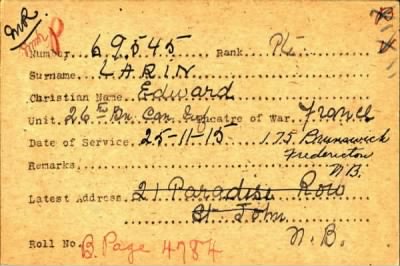 MR
MR P
Number 69545 Rank Pte
Surname LARIN
Christian Name Edward
Unit 26th Bn. Can. Inf. Theatre of War France
Date of Service 25-11-15 175 Brunswick
Fredericton
Remarks N.B.
Latest Address 21 Paradise Row
St John
N.B.
Roll No. B. Page 4784